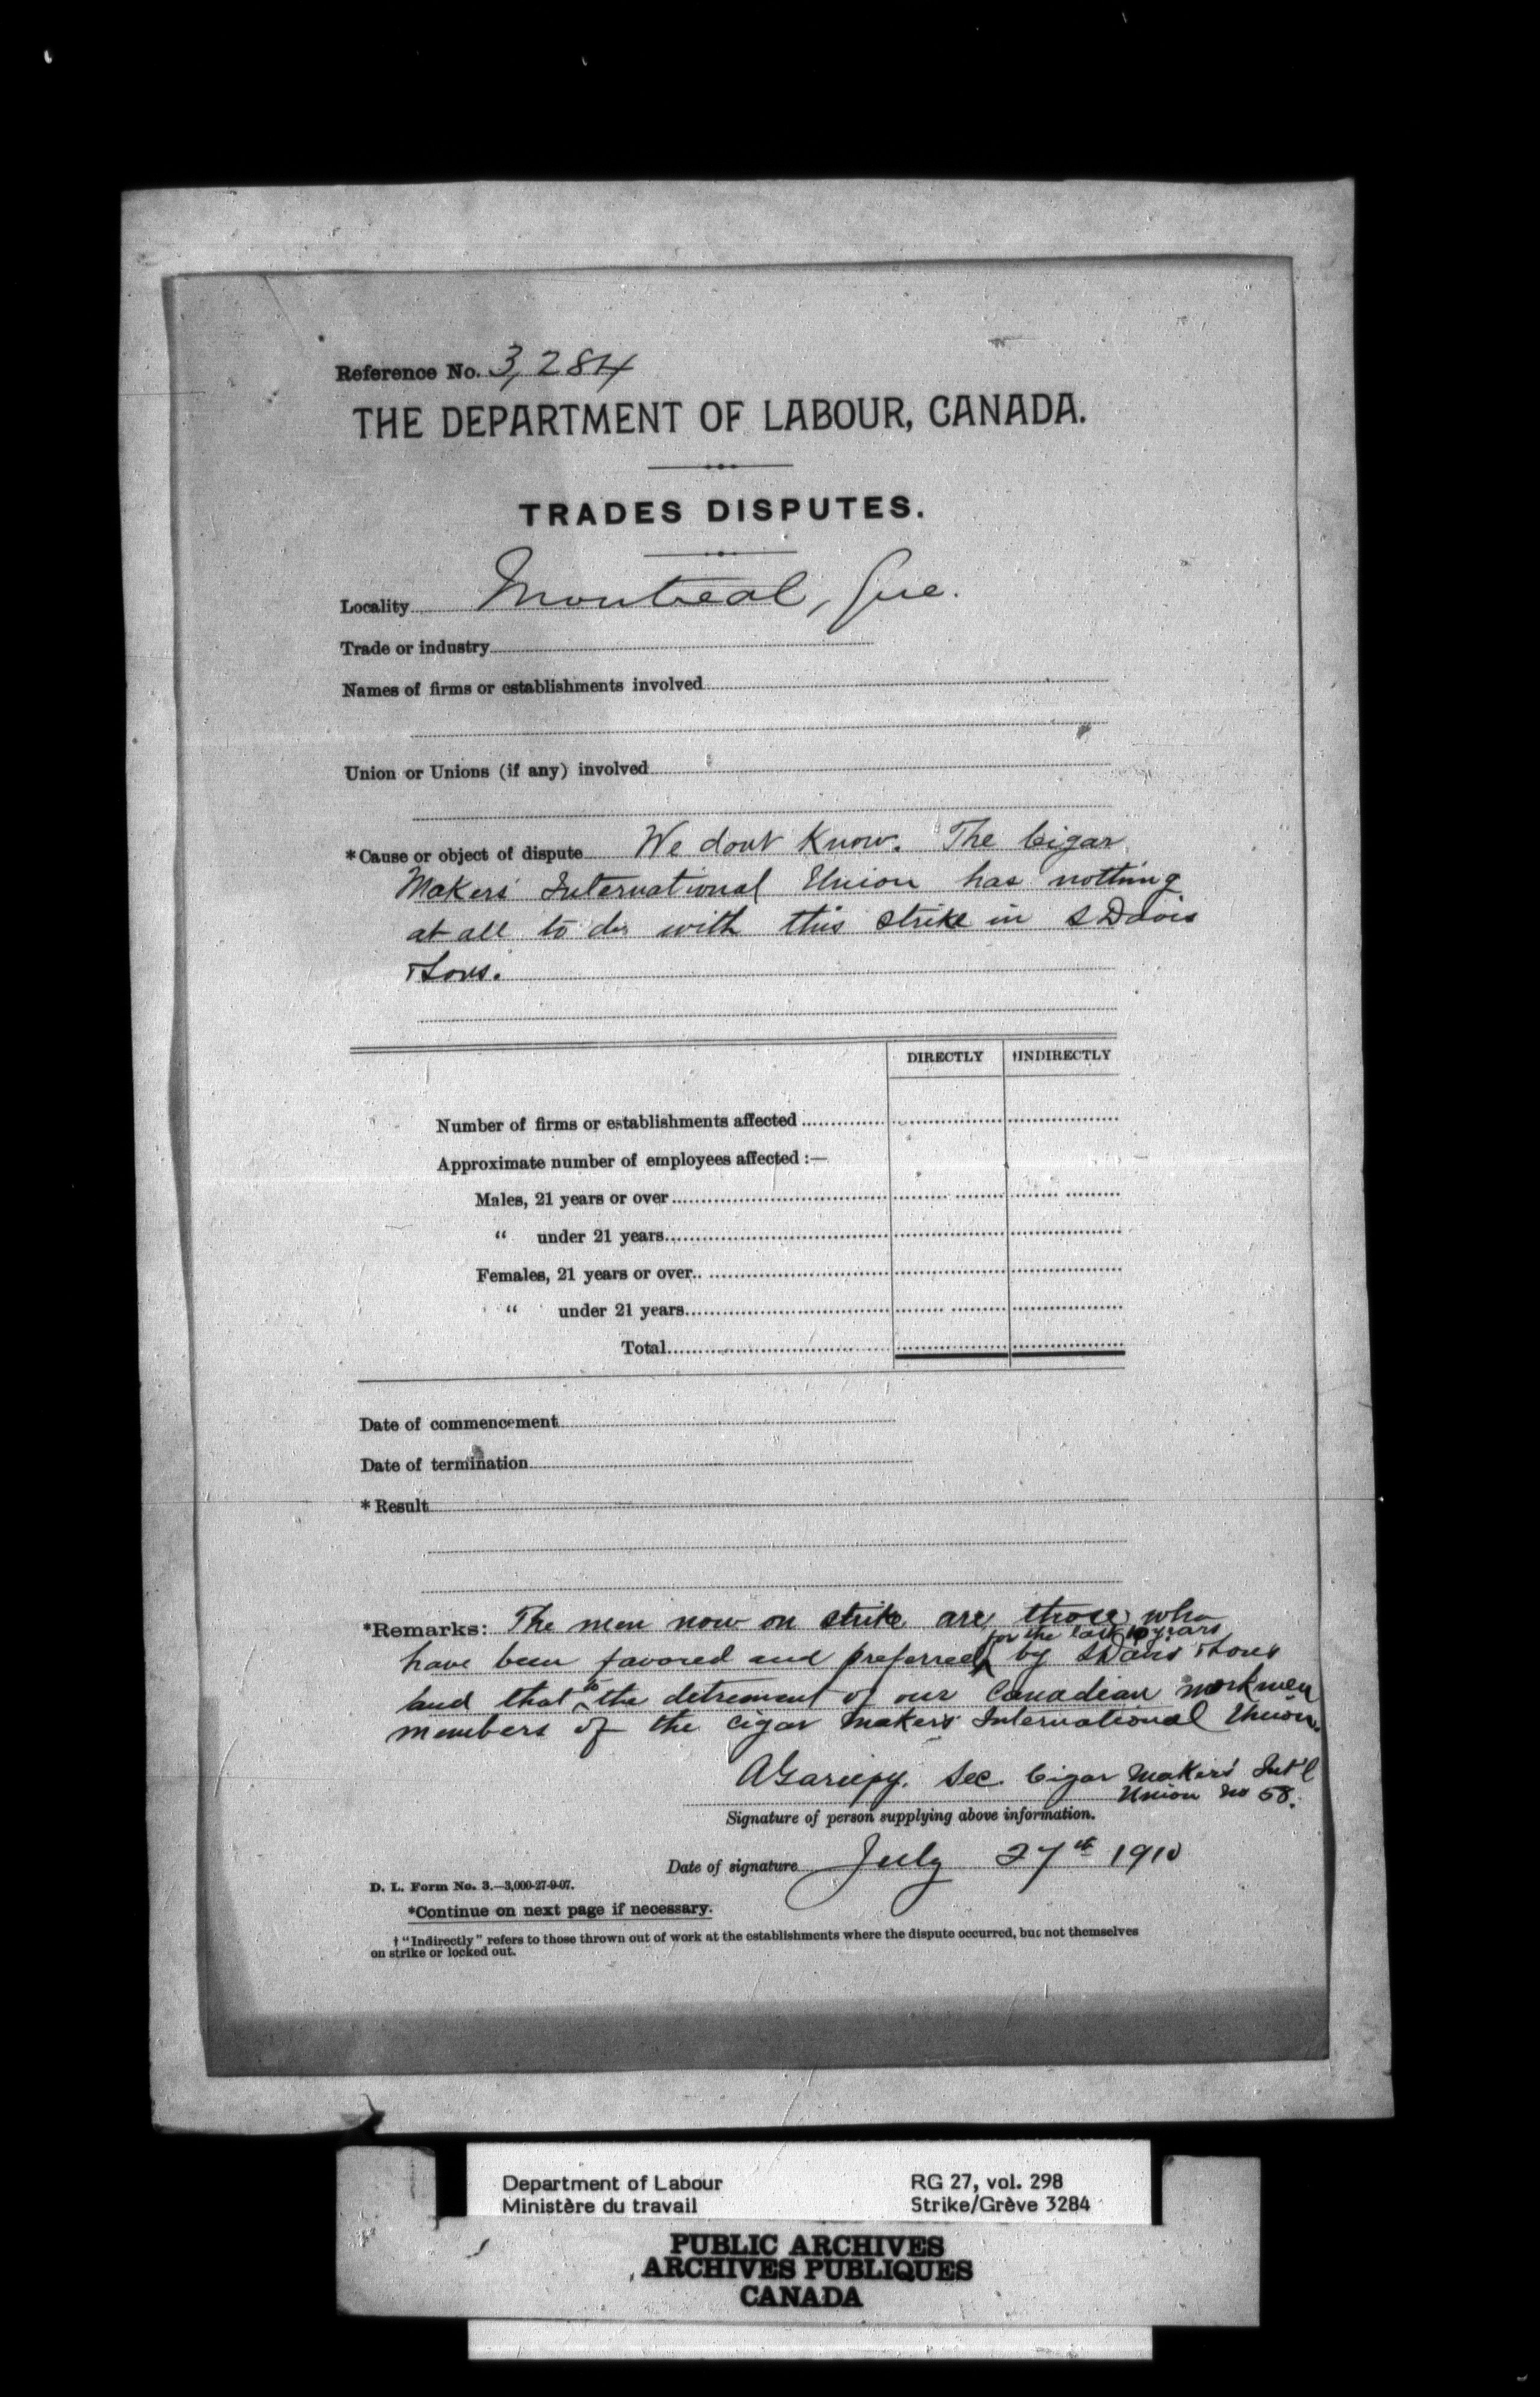 Reference No. 3,284
THE DEPARTMENT OF LABOUR, CANADA.
TRADES DISPUTES.
Locality Montreal, Que.
Trade or industry
Names of firms or establishments involved
Union or Unions (if any) involved
*Cause or object of dispute We dont Know. The Cigar
Makers' International Union has nothing
at all to do with this strike in S Davis
& Sons.
DIRECTLY †INDIRECTLY
Number of firms or establishments affected
Approximate number of employees affected :—
Males, 21 years or over
“ under 21 years
Females, 21 years or over
“ under 21 years
Total
Date of commencement
Date of termination
*Result
*Remarks: The men now on strike are those who
for the last 10 years
have been favored and preferred by S Davis & Sons
and that to the detriment of our Canadian workmen
members of the Cigar Makers International Union.
A Gariepy. Sec. Cigar Makers' Int'l
Union No 58.
Signature of person supplying above information.
Date of signature July 27th 1910
D. L. Form No. 3.—3,000-27-9-07.
*Continue on next page if necessary.
† “Indirectly” refers to those thrown out of work at the establishments where the dispute occurred, but not themselves
on strike or locked out.
Department of Labour RG 27, vol. 298
Ministère du travail Strike/Grève 3284
PUBLIC ARCHIVES
ARCHIVES PUBLIQUES
CANADA